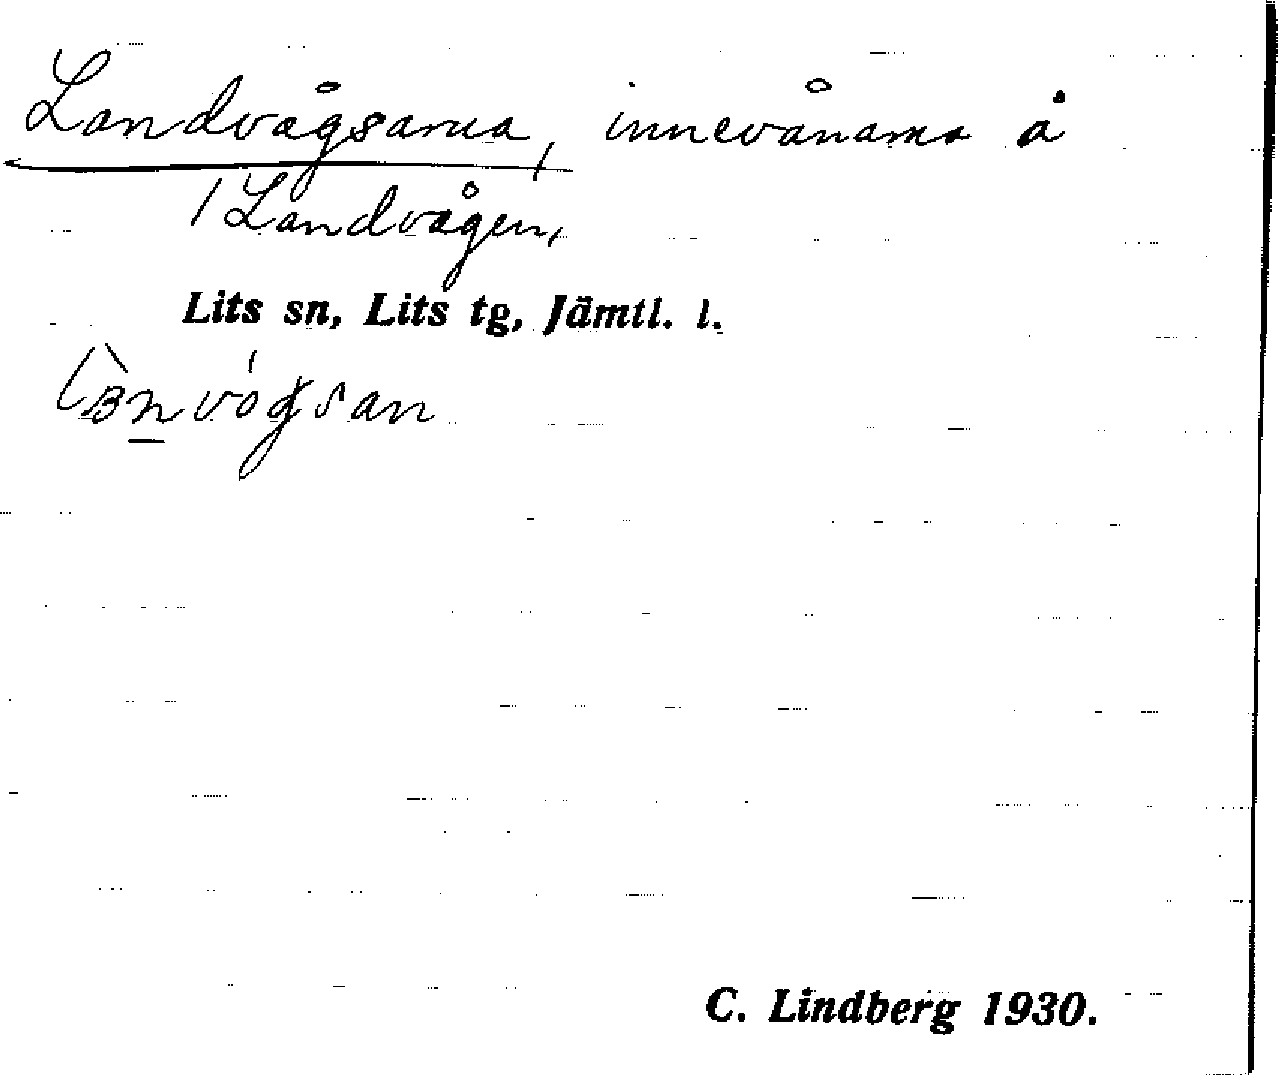 Landvågsarna, innevånarna å
/ Landvågen,
Lits sn, Lits tg, Jämtl. l.
C. Lindberg 1930.